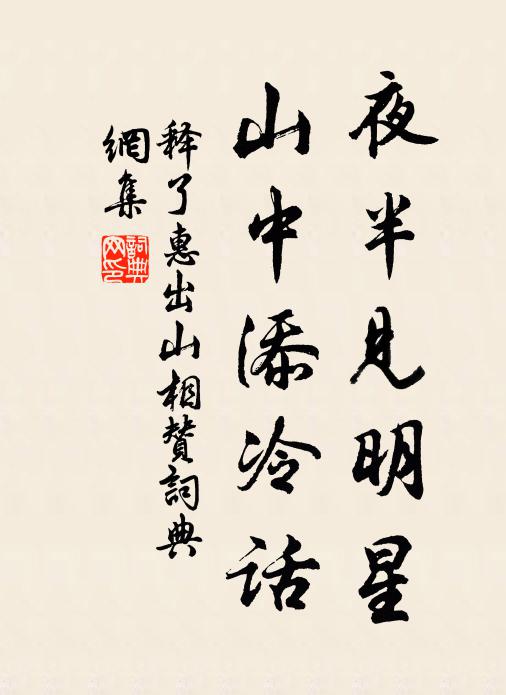 夜半见明星
山中添冷话
释了惠出山相赞词典
網集
詞典網印